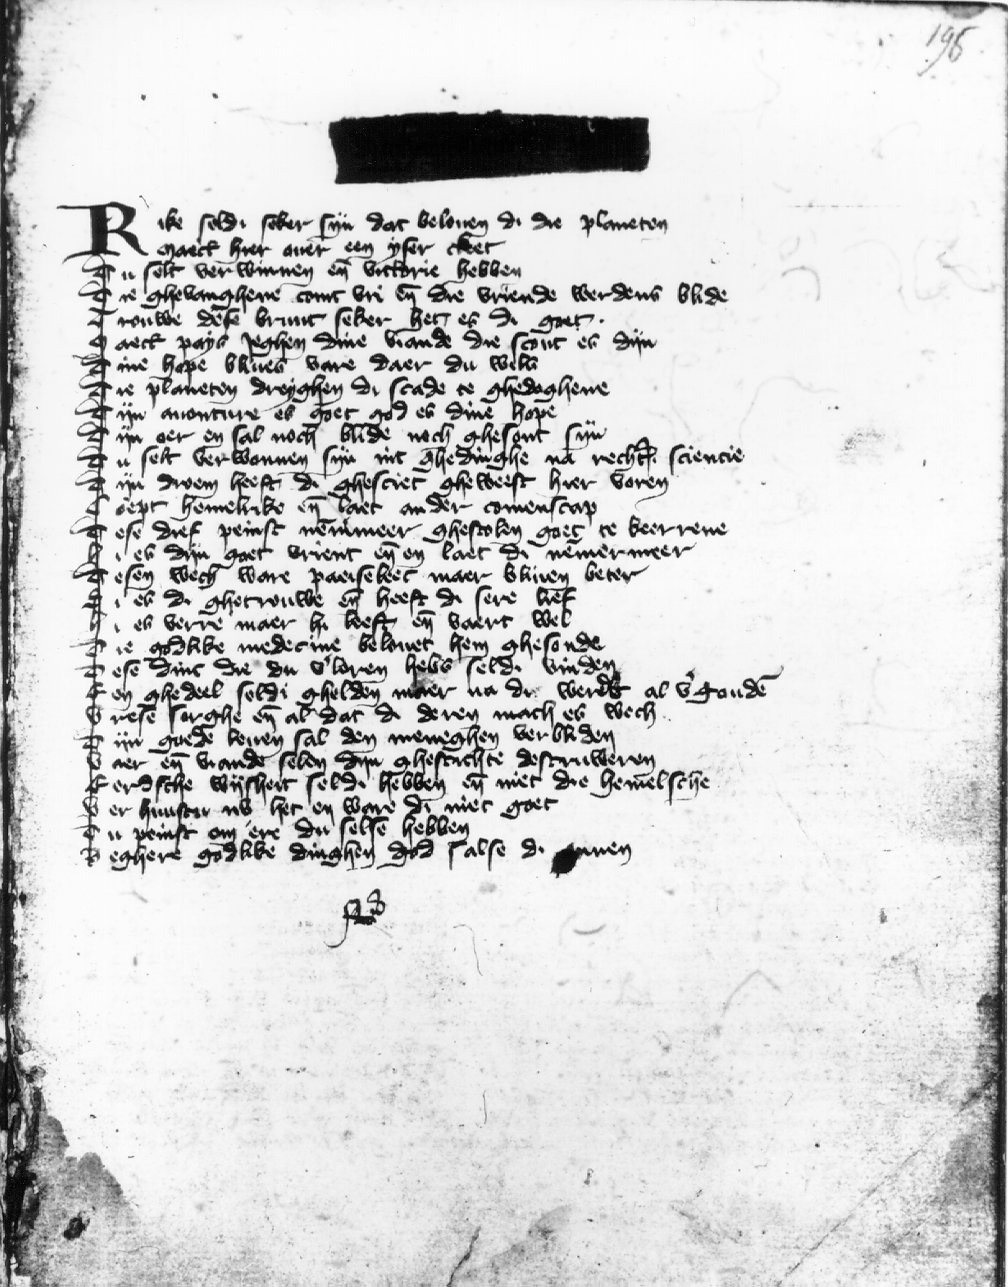 196
Rike seldi seker sijn dat belouen di die planeten
Maect hier ouer een yser cleet
Du selt verwinnen en̄ victorie hebben
Die gheuanghene comt vri en̄ die vriende werdens blide
Trouwe dese bruut seker het es di goet
Maect pays jeghen dine viande die scout es dijn
Dine hope bliues vare daer du wels
Die planeten dreyghen di scade te ghedoghene
Dijn auonture es goet god es dine hope
Dijn oer en sal noch blide noch ghesont sijn
Du selt verwonnen sijn int ghedinghe na recht sciencie
Dijn droem heeft di ghesciet gheweest hier voren
Coept hemelrike en̄ laet ander comenscap
Dese dief peinst nēmmeer ghestolen goet te keerrene
Hi es dijn goet vrient en̄ en laet di nēmermeer
Desen wech ware paerselect maer bliuen beter
Hi es di ghetrouwe en̄ heeft di sere lief
Hi es verre maer hi leeft en̄ vaert wel
Die godlike medecine belouet hem ghesonde
Dese dinc die du v'loren hebs seldi vinden
Een ghedeel seldi ghelden maer na di werdt al v'gouden
Vrese sorghe en̄ al dat di deren mach es wech
Dijn goede leuen sal den meneghen verbliden
Vaer en̄ viande selen dijn ghestichte destruweren
Eerdsche wijsheit seldi hebben en̄ niet die hemelsche
Ver huustu nv het en ware di niet goet
Du peinst om ere du selse hebben
Beghere godlike dinghen god salse di onnen